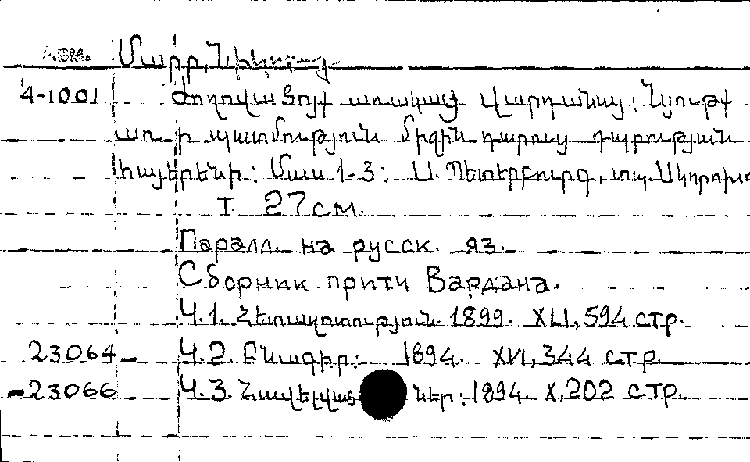 Арм. Մառր, Նիկող
4-1001 Ժողովածոյք առակաց Վարդանայ: Նյութք
առ ի պատմություն միջին դարուց դպրության
հայերենի: Մաս 1-3: Ս. Պետերբուրգ, տպ. Սկորոխո
I. 27 см.
Паралл. на русск. яз.
Сборник притч Вардана.
Ч. 1. Հետազոտություն. 1899. XLI, 594 стр.
23064 - Ч. 2. Բնագիր: 1894. XVI, 344 стр.
-23066 Ч. 3. Հավելված ներ: 1894. X, 202 стр.